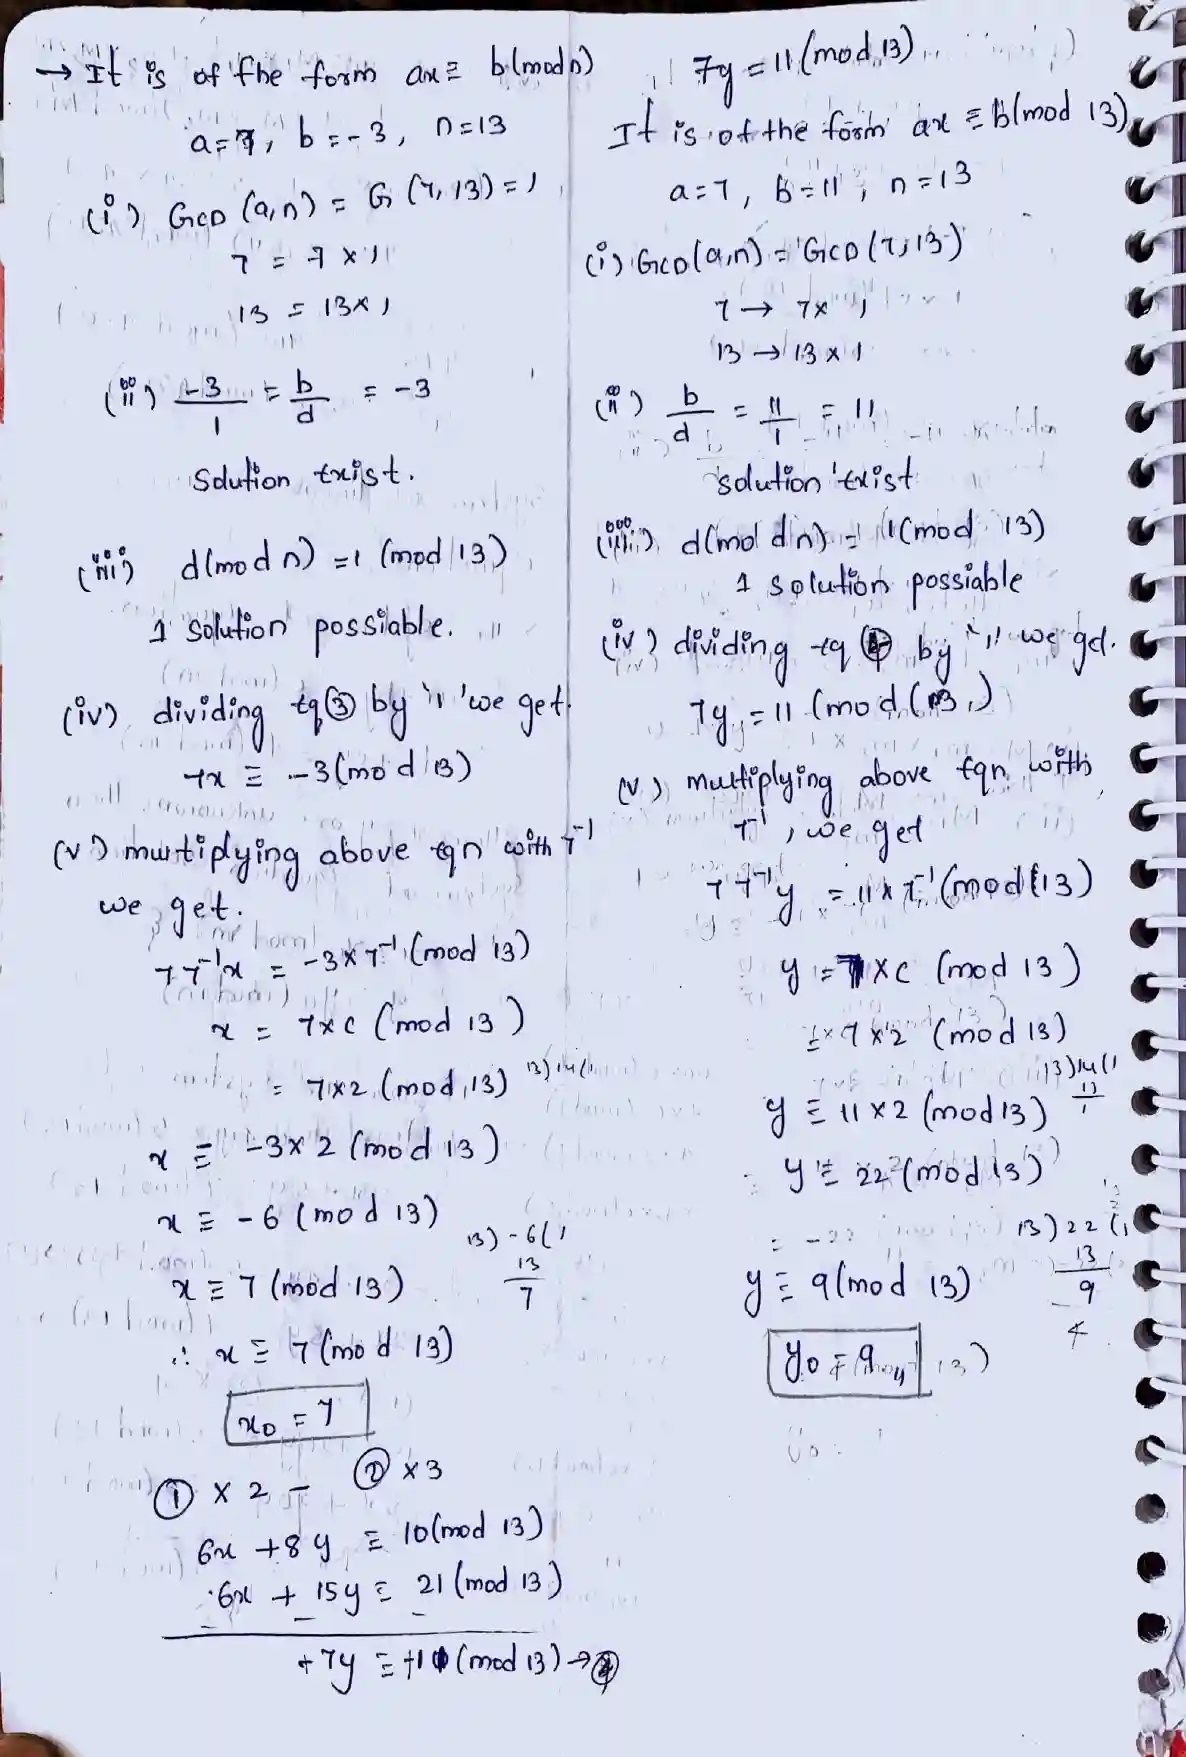 → It is of the form ax ≡ b(mod n)
a=7, b=-3, n=13
(i) GCD (a,n) = G (7, 13) = 1
7 = 7 x 1
13 = 13x1
(ii) -3/1 = b/d = -3
Solution exist.
(iii) d(mod n) = 1 (mod 13)
1 solution possiable.
(iv) dividing eq ③ by '1' we get.
7x ≡ -3(mod 13)
(v) multiplying above eqn with 7⁻¹
we get.
7 7⁻¹x = -3x7⁻¹ (mod 13)
x = 7xc (mod 13)
= 7x2 (mod 13) 13)14(1
x ≡ -3x2 (mod 13)
x ≡ -6 (mod 13)
13)-6(1
13
7
x ≡ 7 (mod 13)
∴ x ≡ 7 (mod 13)
x₀ = 7
① x 2 - ② x3
6x + 8y ≡ 10(mod 13)
6x + 15y ≡ 21 (mod 13)
- - -
+7y ≡ +11 (mod 13) →
7y = 11 (mod 13)
It is of the form ax ≡ b(mod 13)
a=7, b=11, n=13
(i) GCD(a,n) = GCD(7,13)
7 → 7x 1
13 → 13 x 1
(ii) b/d = 11/1 = 11
solution exist
(iii) d(mod n) = 1(mod 13)
1 solution possiable
(iv) dividing eq by '1' we get.
7y = 11 (mod (13)
(v) multiplying above eqn with
7⁻¹, we get
7 7⁻¹y = 11 x 7⁻¹ (mod 13)
y = 7xc (mod 13)
= 7x2 (mod 13)
13)14(1
13
1
y ≡ 11 x 2 (mod 13)
y ≡ 22 (mod 13)
13) 22 (1
13
9
y ≡ 9(mod 13)
y₀ = 9